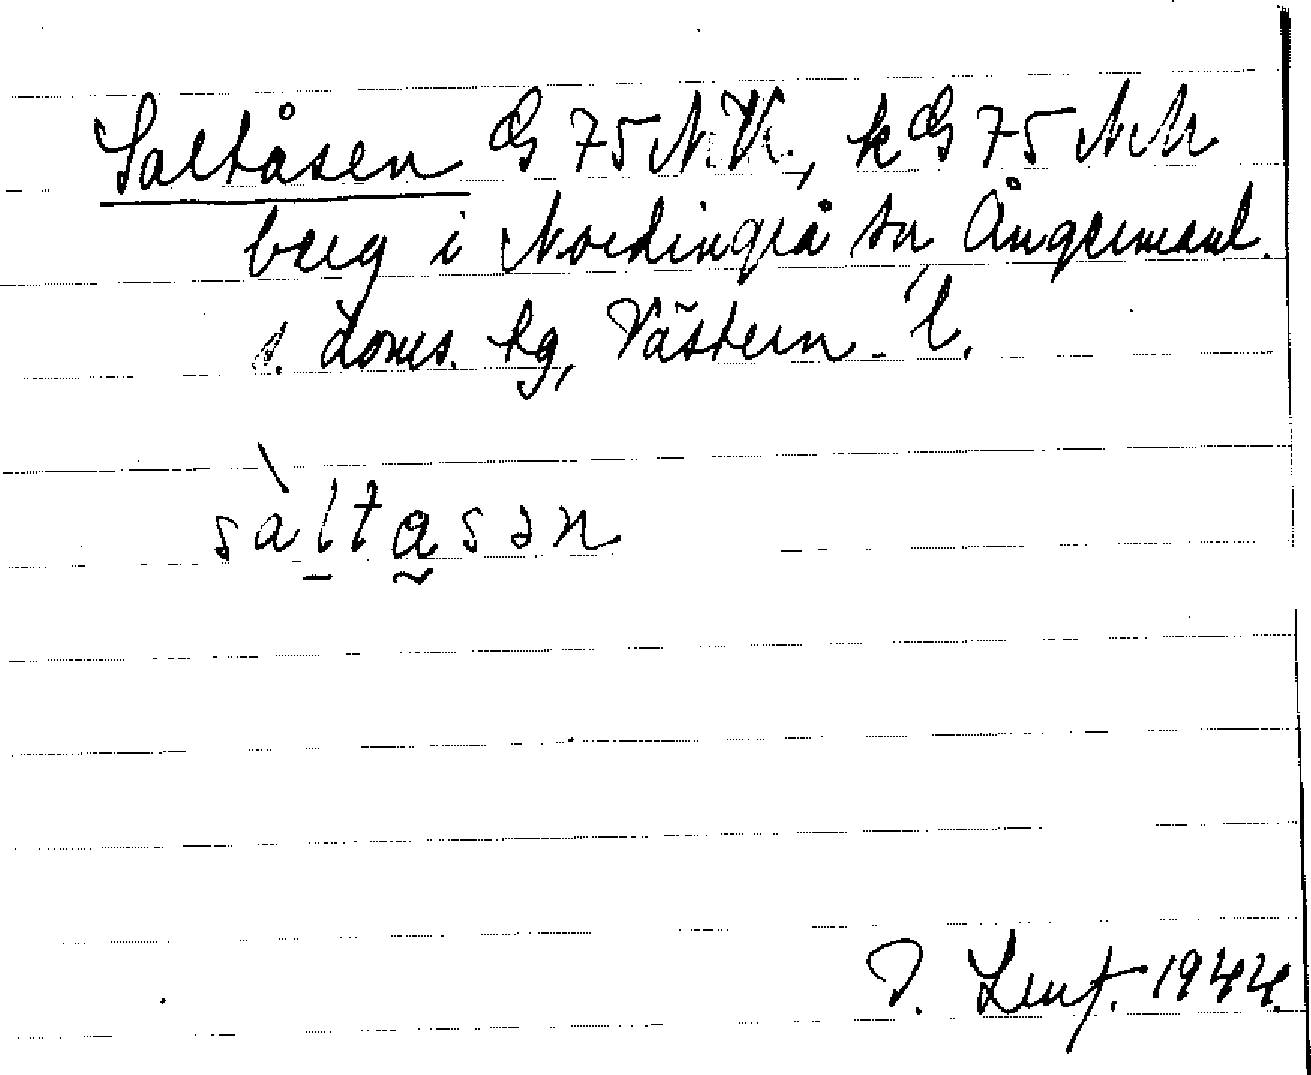 Saltåsen GS 75 N.V., k GS 75 NM
berg i Nordingrå sn, Ångermanl.
s. doms. tg, Västern. l.
sàltasən
1944